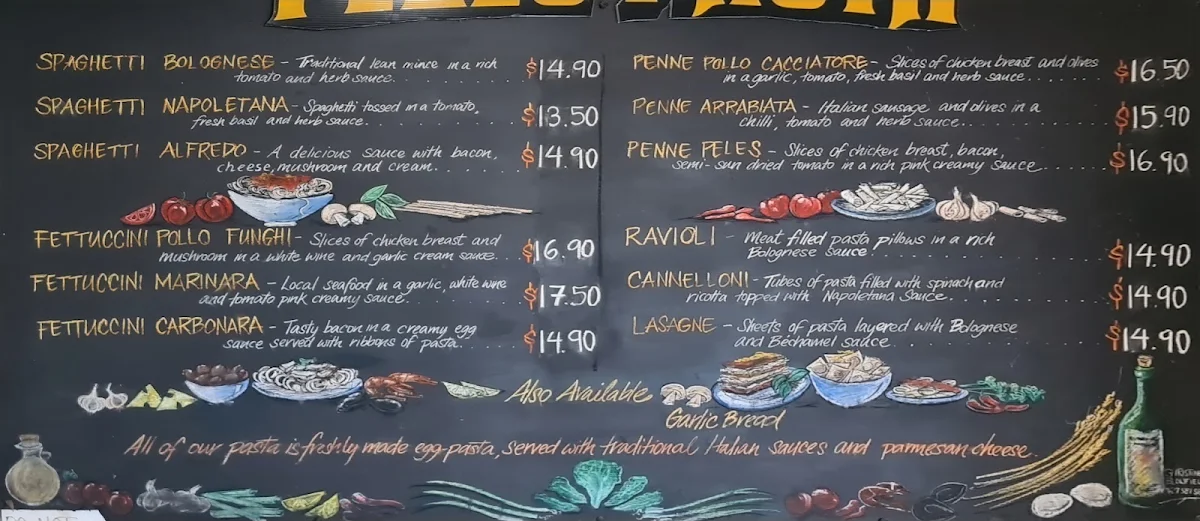 SPAGHETTI BOLOGNESE - Traditional lean mince in a rich
tomato and herb sauce. $14.90
SPAGHETTI NAPOLETANA - Spaghetti tossed in a tomato,
fresh basil and herb sauce. $13.50
SPAGHETTI ALFREDO - A delicious sauce with bacon,
cheese, mushroom and cream. $14.90
FETTUCCINI POLLO FUNGHI - Slices of chicken breast and
mushroom in a white wine and garlic cream sauce. $16.90
FETTUCCINI MARINARA - Local seafood in a garlic, white wine
and tomato pink creamy sauce. $17.50
FETTUCCINI CARBONARA - Tasty bacon in a creamy egg
sauce served with ribbons of pasta. $14.90
PENNE POLLO CACCIATORE - Slices of chicken breast and olives
in a garlic, tomato, fresh basil and herb sauce. $16.50
PENNE ARRABIATA - Italian sausage and olives in a
chilli, tomato and herb sauce. $15.90
PENNE PELES - Slices of chicken breast, bacon,
semi-sun dried tomato in a rich pink creamy sauce. $16.90
RAVIOLI - Meat filled pasta pillows in a rich
Bolognese sauce. $14.90
CANNELLONI - Tubes of pasta filled with spinach and
ricotta topped with Napoletana Sauce. $14.90
LASAGNE - Sheets of pasta layered with Bolognese
and Béchamel sauce. $14.90
Also Available
Garlic Bread
All of our pasta is freshly made egg-pasta, served with traditional Italian sauces and parmesan cheese.